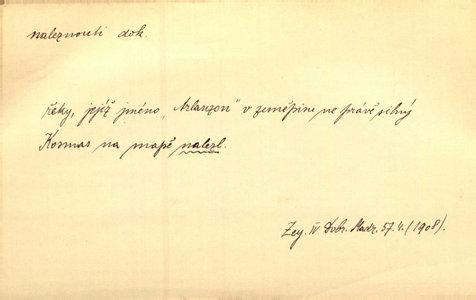 naleznouti dok.
řeky, jejíž jméno „Arlanzon" v zeměpise ne právě silný
Kosmas na mapě nalezl.
Zey. IV Dobr. Madr. 57.4. (1908).